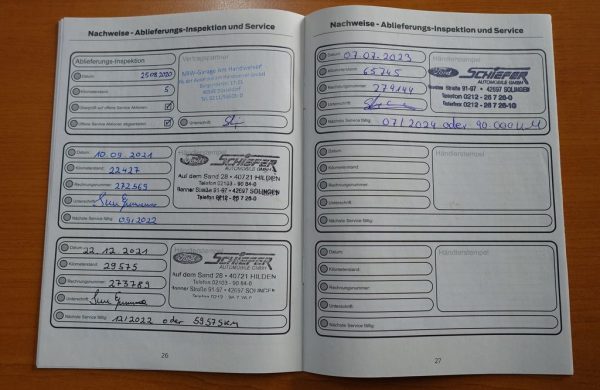 Nachweise - Ablieferungs-Inspektion und Service
Ablieferungs-Inspektion
Vertragspartner
Datum 25.08.2020
NRW-Garage am Handweiser
Kilometerstand 5
40549 Düsseldorf
Überprüft auf offene Service Aktionen
Offene Service Aktionen abgearbeitet
Unterschrift
Datum 10.09.2021
Händlerstempel
Kilometerstand 22427
Ford SCHIEFER
AUTOMOBILE GMBH
Auf dem Sand 28 • 40721 HILDEN
Telefon 02103 - 90 84-0
Bonner Straße 91-97 • 42697 SOLINGEN
Telefon 0212 - 26 7 26-0
Rechnungsnummer 272569
Unterschrift
Nächste Service fällig 09/2022
Datum 22.12.2021
Händlerstempel
Kilometerstand 29575
Ford SCHIEFER
AUTOMOBILE GMBH
Auf dem Sand 28 • 40721 HILDEN
Telefon 02103 - 90 84-0
Bonner Straße 91-97 • 42697 SOLINGEN
Rechnungsnummer 273789
Unterschrift
Nächste Service fällig 12/2022 oder 59575KM
26
Nachweise - Ablieferungs-Inspektion und Service
Datum 07.07.2023
Händlerstempel
Kilometerstand 65745
Ford SCHIEFER
AUTOMOBILE GMBH
Rechnungsnummer 279144
Straße 91-97 • 42697 SOLINGEN
Telefon 0212 - 26 7 26-0
Telefax 0212 - 26 7 26-10
Unterschrift
Nächste Service fällig 07/2024 oder 90.000KM
Datum
Händlerstempel
Kilometerstand
Rechnungsnummer
Unterschrift
Nächste Service fällig
Datum
Händlerstempel
Kilometerstand
Rechnungsnummer
Unterschrift
Nächste Service fällig
27